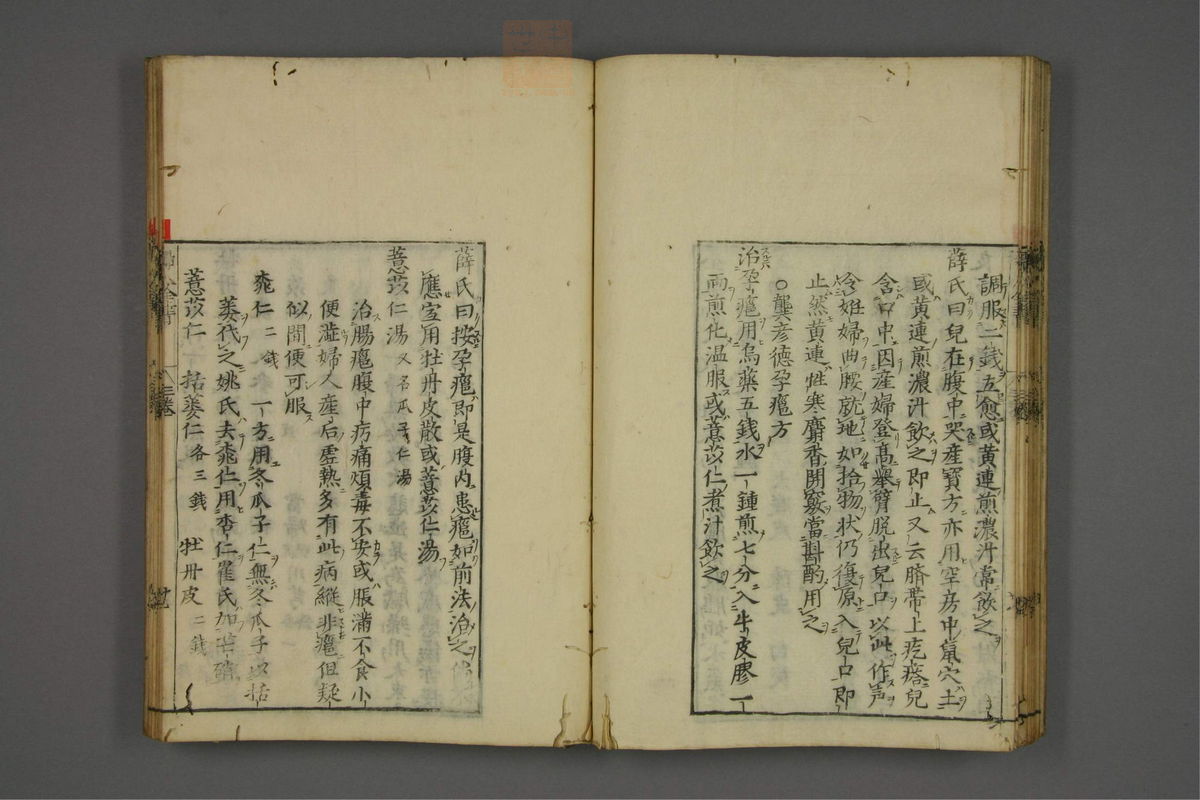 調服二錢立愈或黄連煎濃汁常飲之
薛氏曰兒在腹中哭産寳方亦用空房中鼠穴土
或黄連煎濃汁飲之即止又云臍帯上疙瘩兒
含口中因産婦登髙舉臂脱出兒口以此作声
令妊婦曲腰就地如拾物状仍復原入兒口即
止然黄連性寒麝香開竅當斟酌用之
○龔彦德孕癰方
治孕癰用烏藥五錢水一鍾煎七分入牛皮膠一
兩煎化温服或薏苡仁煮汁飲之
薛氏曰按孕癰即是腹内患癰如前法治之
應宜用牡丹皮散或薏苡仁湯
薏苡仁湯又名瓜子仁湯
治腸癰腹中疞痛煩毒不安或脹滿不食小
便澁婦人産后虚熱多有此病縱非癰但疑
似間便可服
薏苡仁 括蔞仁各三錢 牡丹皮二錢
桃仁二錢 一方用冬瓜子仁無冬瓜子以括
蔞代之姚氏去桃仁用杏仁崔氏加芒硝